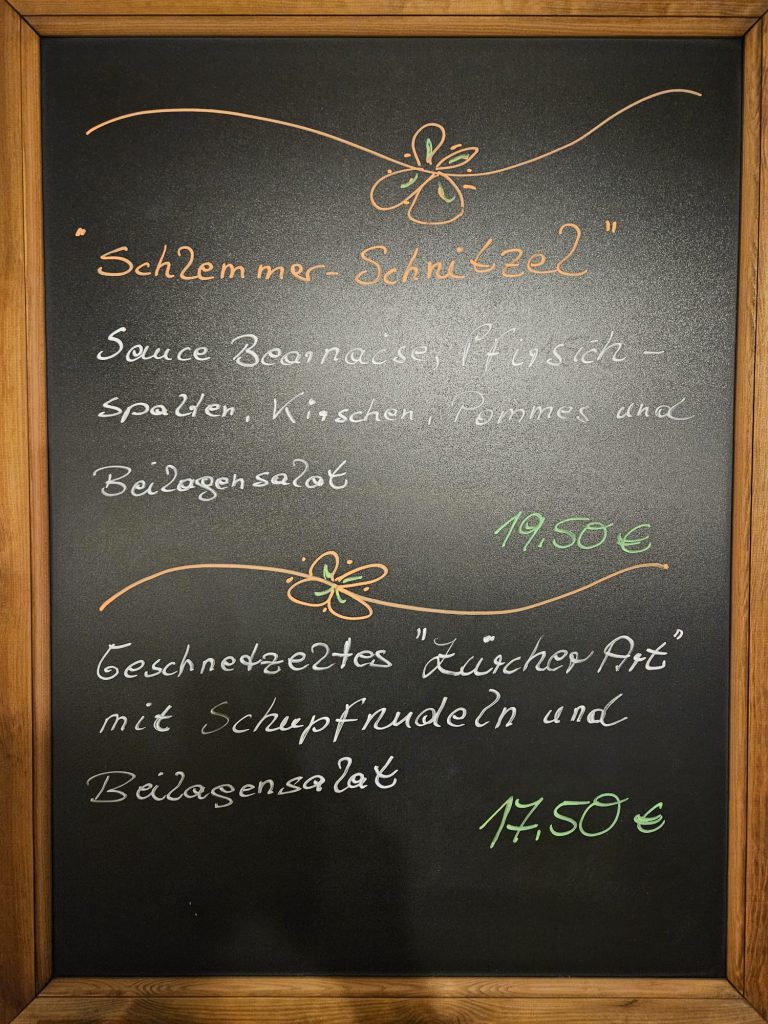 "Schlemmer-Schnitzel"
Sauce Bearnaise, Pfirsich-
spalten, Kirschen, Pommes und
Beilagensalat
19,50 €
Geschnetzeltes "Zürcher Art"
mit Schupfnudeln und
Beilagensalat
17,50 €